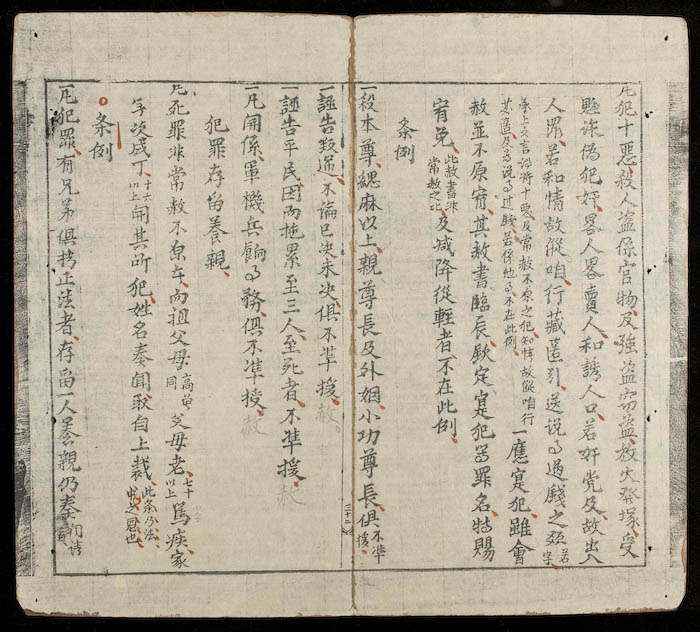 凡犯十悪殺人盗係官物及強盗窃盗放火發塚受
賍詐偽犯奸畧人畧賣人和誘人口若奸党及故出入
人罪若和情故縱听行藏匿引送説事過錢之類若字
承上文言謂将十悪及常赦不原之犯知情故縱听行
其匿及為説事过錢若係他事不在此例一應寔犯雖會
赦並不原宥其赦書臨辰欽定寔犯等罪名特賜
宥免此赦書非常赦之比及减降從輕者不在此例
条例
一殺本尊緦麻以上親尊長及外姻小功尊長俱不準援
三十二
一誣告致逓不論已决未决俱不準援赦
一誣告平民因而拖累至三人至死者不準援赦
一凡関係軍機兵餉事務俱不準援赦
犯罪存留養親
凡死罪非常赦不原者而祖父母高曾同父母老七十以上篤疾家
年次成丁十六以上開其所犯姓名奏聞取自上裁此条乃法中之恩也
条例
一凡犯罪有兄弟俱擬正法者存留一人養親仍奏聞請旨